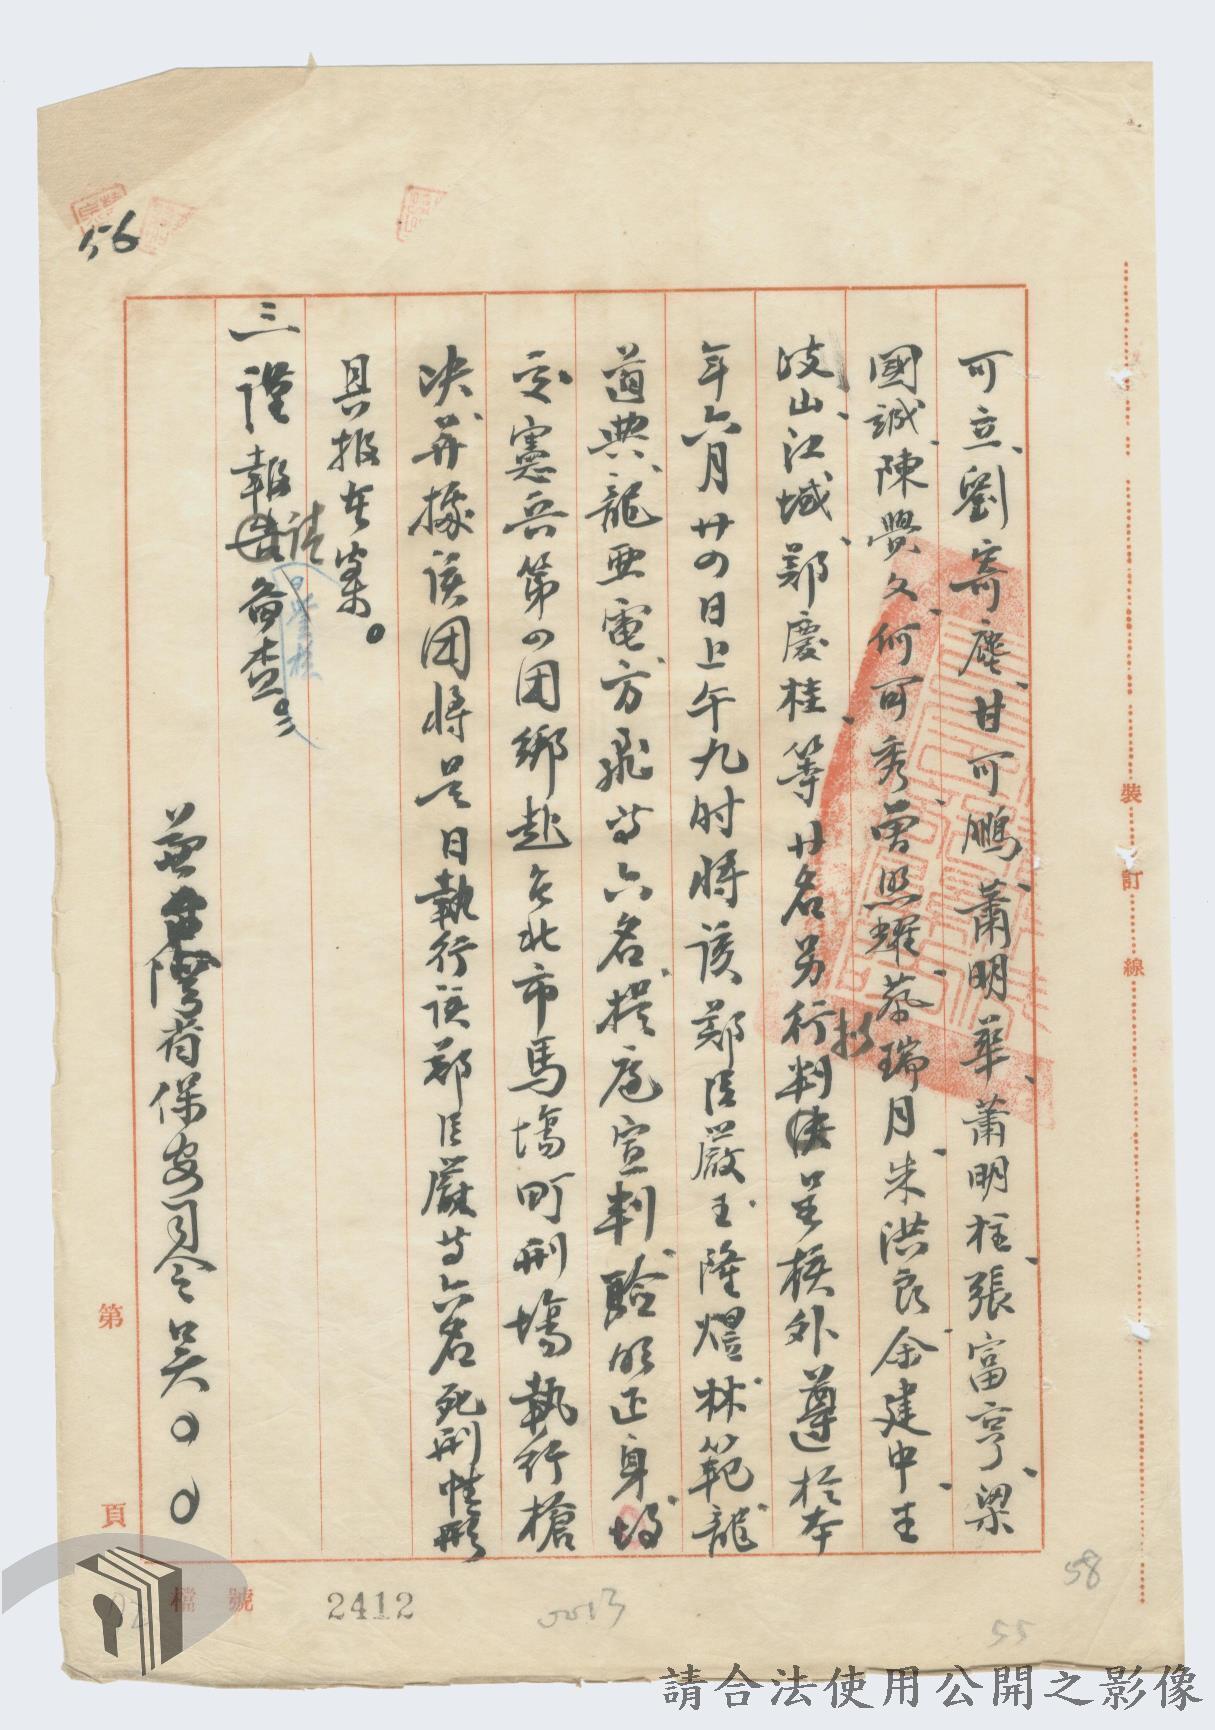 56
可立、劉寄塵、甘可鵬、蕭明華、蕭明柱、張富亨、梁
國誠、陳興文、何可秀、曾照耀、蔡瑞月、朱洪良、余建中、王
岐山、江域、鄭慶桂、等廿名另行擬判呈核外遵於本
年六月廿四日上午九时將该鄭臣嚴、王隆熠、林範、龍
道典、龍亚電、方飛等六名、提庭宣判、驗明正身、
交憲兵第四团綁赴台北市馬場町刑場執行槍
决、并據该团將是日執行该鄭臣嚴等六名死刑情形
具报在案。
三謹報請備查。
兼台灣省保安司令吳〇〇
裝 訂 線
第 頁
檔 號
2412
0013
58
55
請合法使用公開之影像